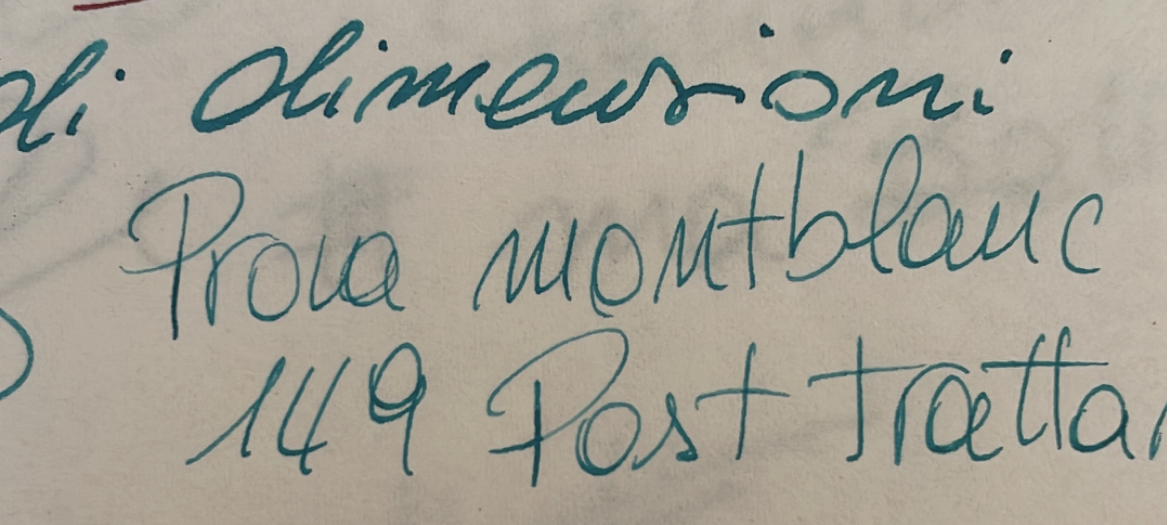 di dimensioni
Prova montblanc
149 Post tratta